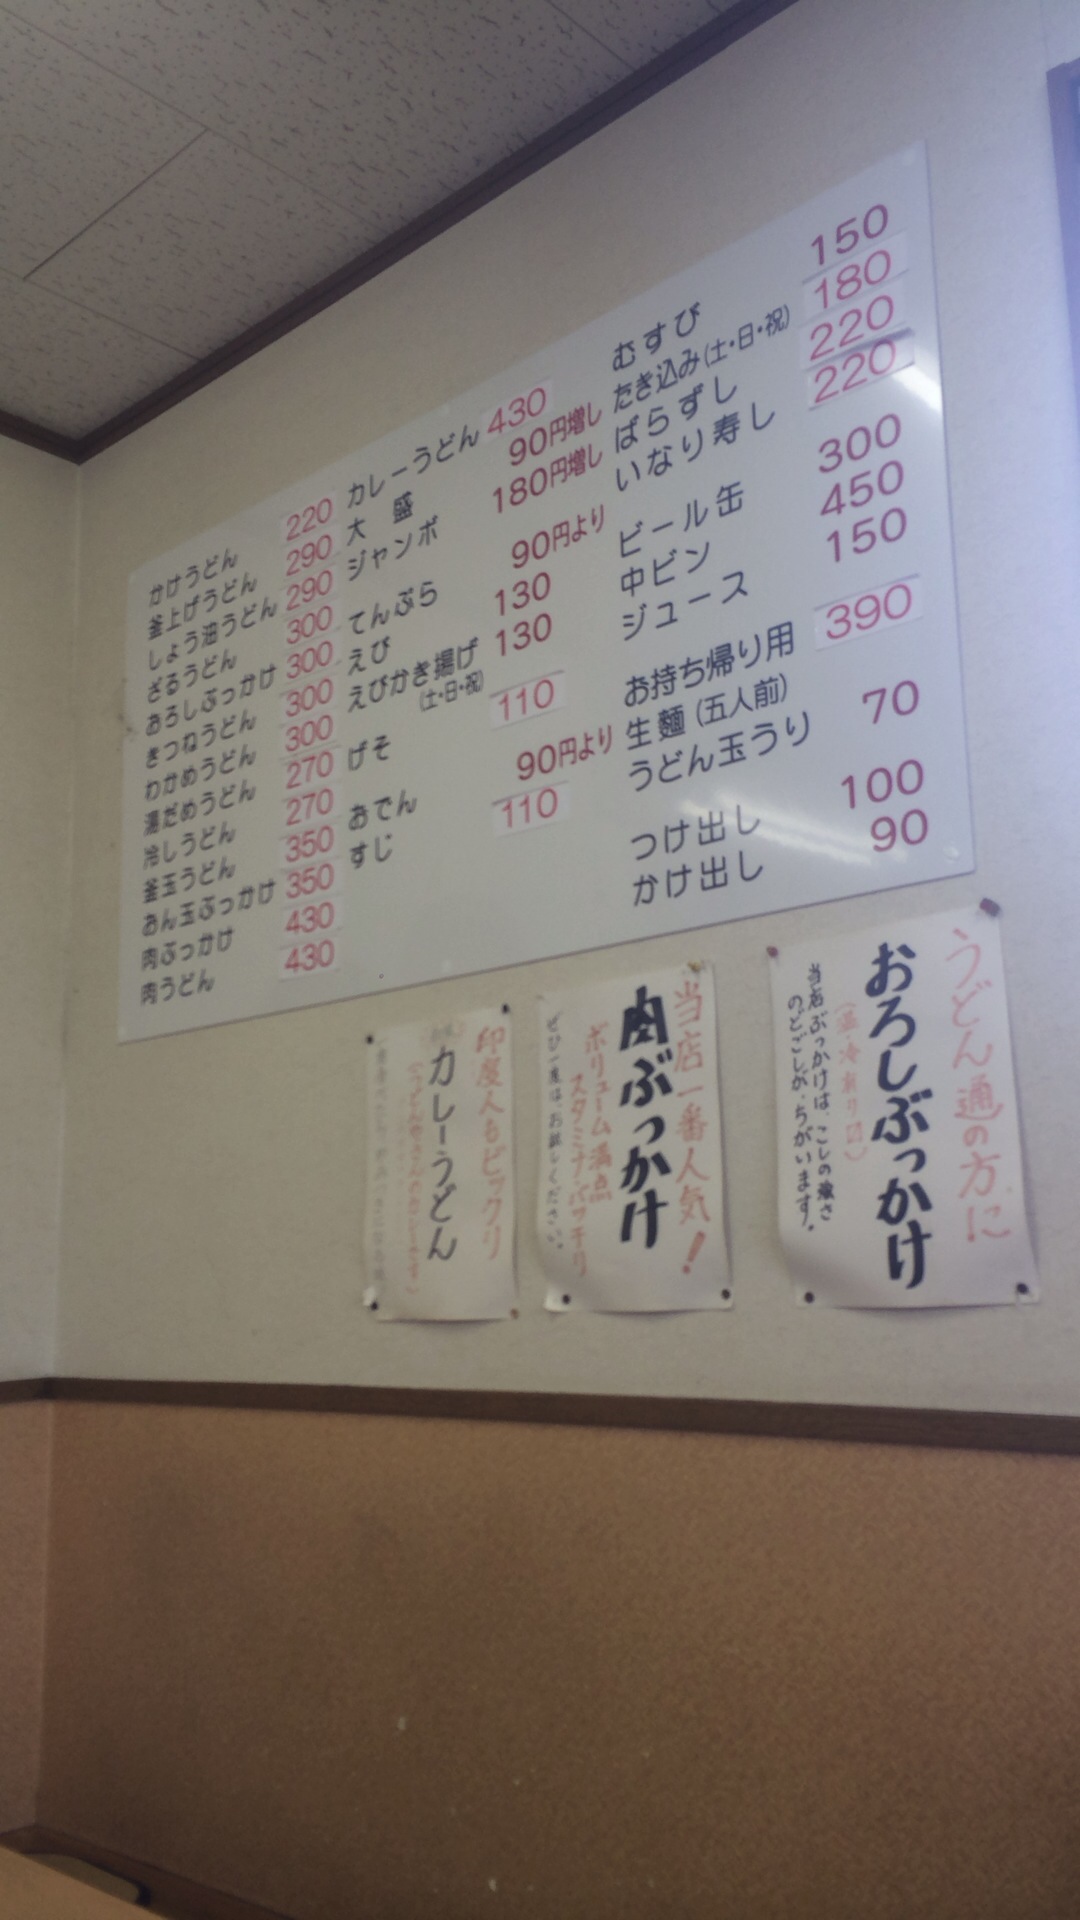 かけうどん 220
釜上げうどん 290
しょう油うどん 290
ざるうどん 300
おろしぶっかけ 300
きつねうどん 300
わかめうどん 300
湯だめうどん 270
冷しうどん 270
釜玉うどん 350
おん玉ぶっかけ 350
肉ぶっかけ 430
肉うどん 430
カレーうどん 430
大盛 90円増し
ジャンボ 180円増し
てんぷら 90円より
えび 130
えびかき揚げ 130
(土・日・祝)
げそ 110
おでん 90円より
すじ 110
むすび 150
たき込み(土・日・祝) 180
ばらずし 220
いなり寿し 220
ビール缶 300
中ビン 450
ジュース 150
お持ち帰り用
生麺(五人前) 390
うどん玉うり 70
つけ出し 100
かけ出し 90
うどん通の方に
おろしぶっかけ
(温・冷有り〼)
当店ぶっかけは、こしの強さ
のどごしが、ちがいます。
当店一番人気!
肉ぶっかけ
ボリューム満点
スタミナ・バッチリ
ぜひ一度は、お試しください。
印度人もビックリ
カレーうどん